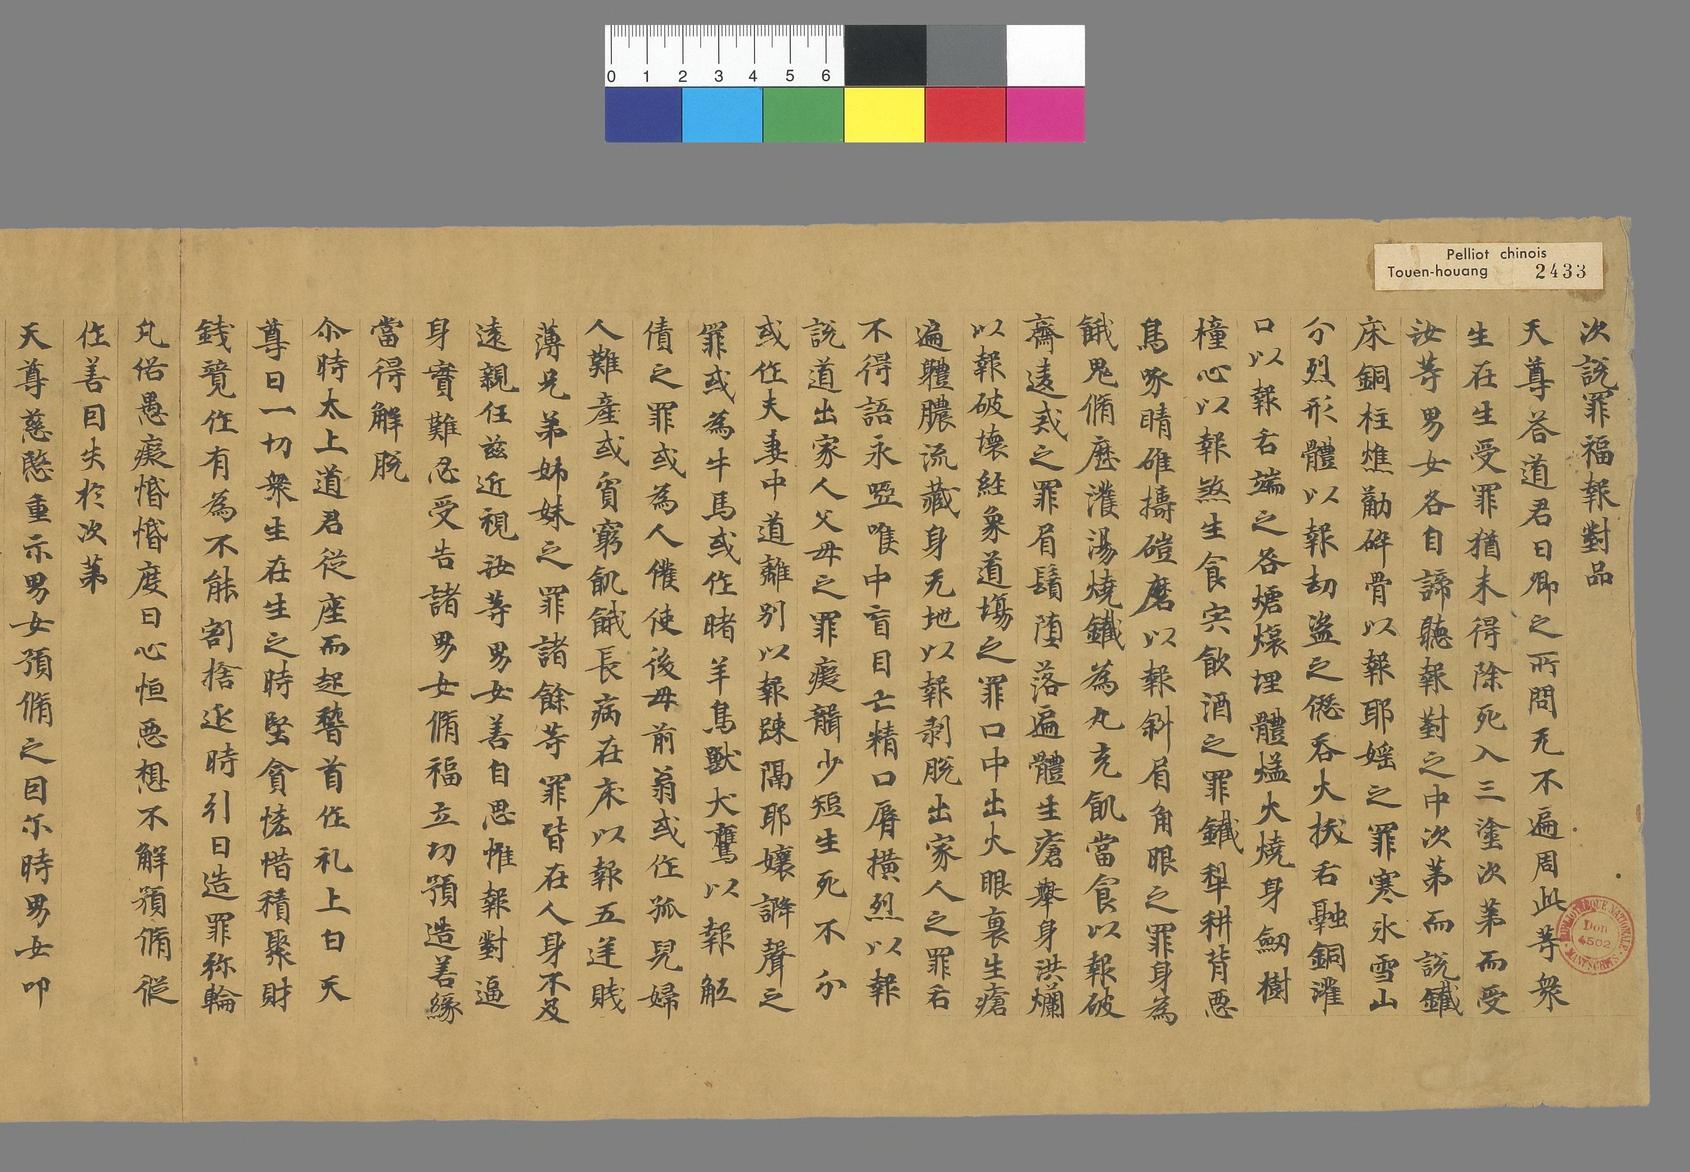 Pelliot chinois
Touen-houang 2433
次說罪福報對品
天尊荅道君曰卿之所問无不遍周此等衆
生在生受罪猶未得除死入三塗次苐而受
汝等男女各自諦聽報對之中次第而說鐵
床銅柱燋觔碎骨以報耶媱之罪寒氷雪山
分烈形體以報劫盜之𠎝吞火拔舌融銅灌
口以報舌端之咎煻煨埋體猛火燒身劒樹
橦心以報煞生食宍飲酒之罪鐵犁耕背惡
鳥啄睛碓擣磑磨以報斜眉角眼之罪身為
餓鬼脩歷濩湯燒鐵為丸充飢當食以報破
齋違戒之罪眉鬚墮落遍體生瘡舉身洪爛
以報破壞經象道塲之罪口中出火眼裏生瘡
遍體膿流藏身无地以報剥脫出家人之罪舌
不得語永啞喉中盲目亡精口脣橫烈以報
說道出家人父母之罪癡聾少短生死不分
或作夫妻中道離别以報踈隔耶孃諍聲之
罪或為牛馬或作睹羊鳥獸犬鷹以報觝
債之罪或為人催使後母前翁或作孤兒婦
人難產或貧窮飢餓長病在床以報五逆賤
薄兄弟姊妹之罪諸餘等罪皆在人身不及
遠親任茲近視汝等男女善自思惟報對逼
身實難忍受告諸男女脩福立功預造善緣
當得解脫
尒時太上道君從座而起稽首作礼上白天
尊曰一切衆生在生之時堅貪恡惜積聚財
錢覓作有為不能割捨延時引日造罪弥輪
凡俗愚癡惛惛度日心恒惡想不解預脩從
作善因失於次苐
天尊慈愍重示男女預脩之因尒時男女叩
BIBLIOTHEQUE NATIONALE MANUSCRITS
Don
4502